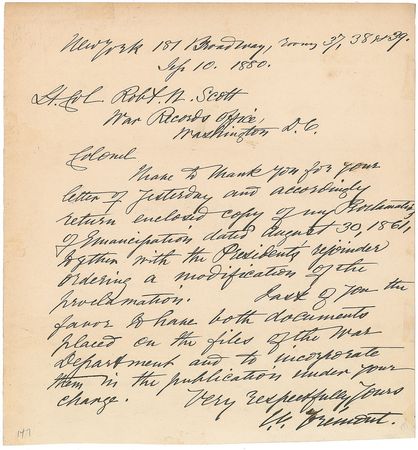 New York 181 Broadway, rooms 37, 38 & 39.
Sep 10. 1880.
Lt. Col Robt. N. Scott
War Records Office,
Washington D.C.
Colonel
I have to thank you for your
letter of yesterday and accordingly
return enclosed copy of my Proclamation
of Emancipation, dated August 30, 1861,
together with the President's rejoinder
ordering a modification of the
proclamation. I ask of you the
favor to have both documents
placed on the files of the War
Department and to incorporate
them in the publication under your
charge. Very respectfully Yours
Fremont.
147